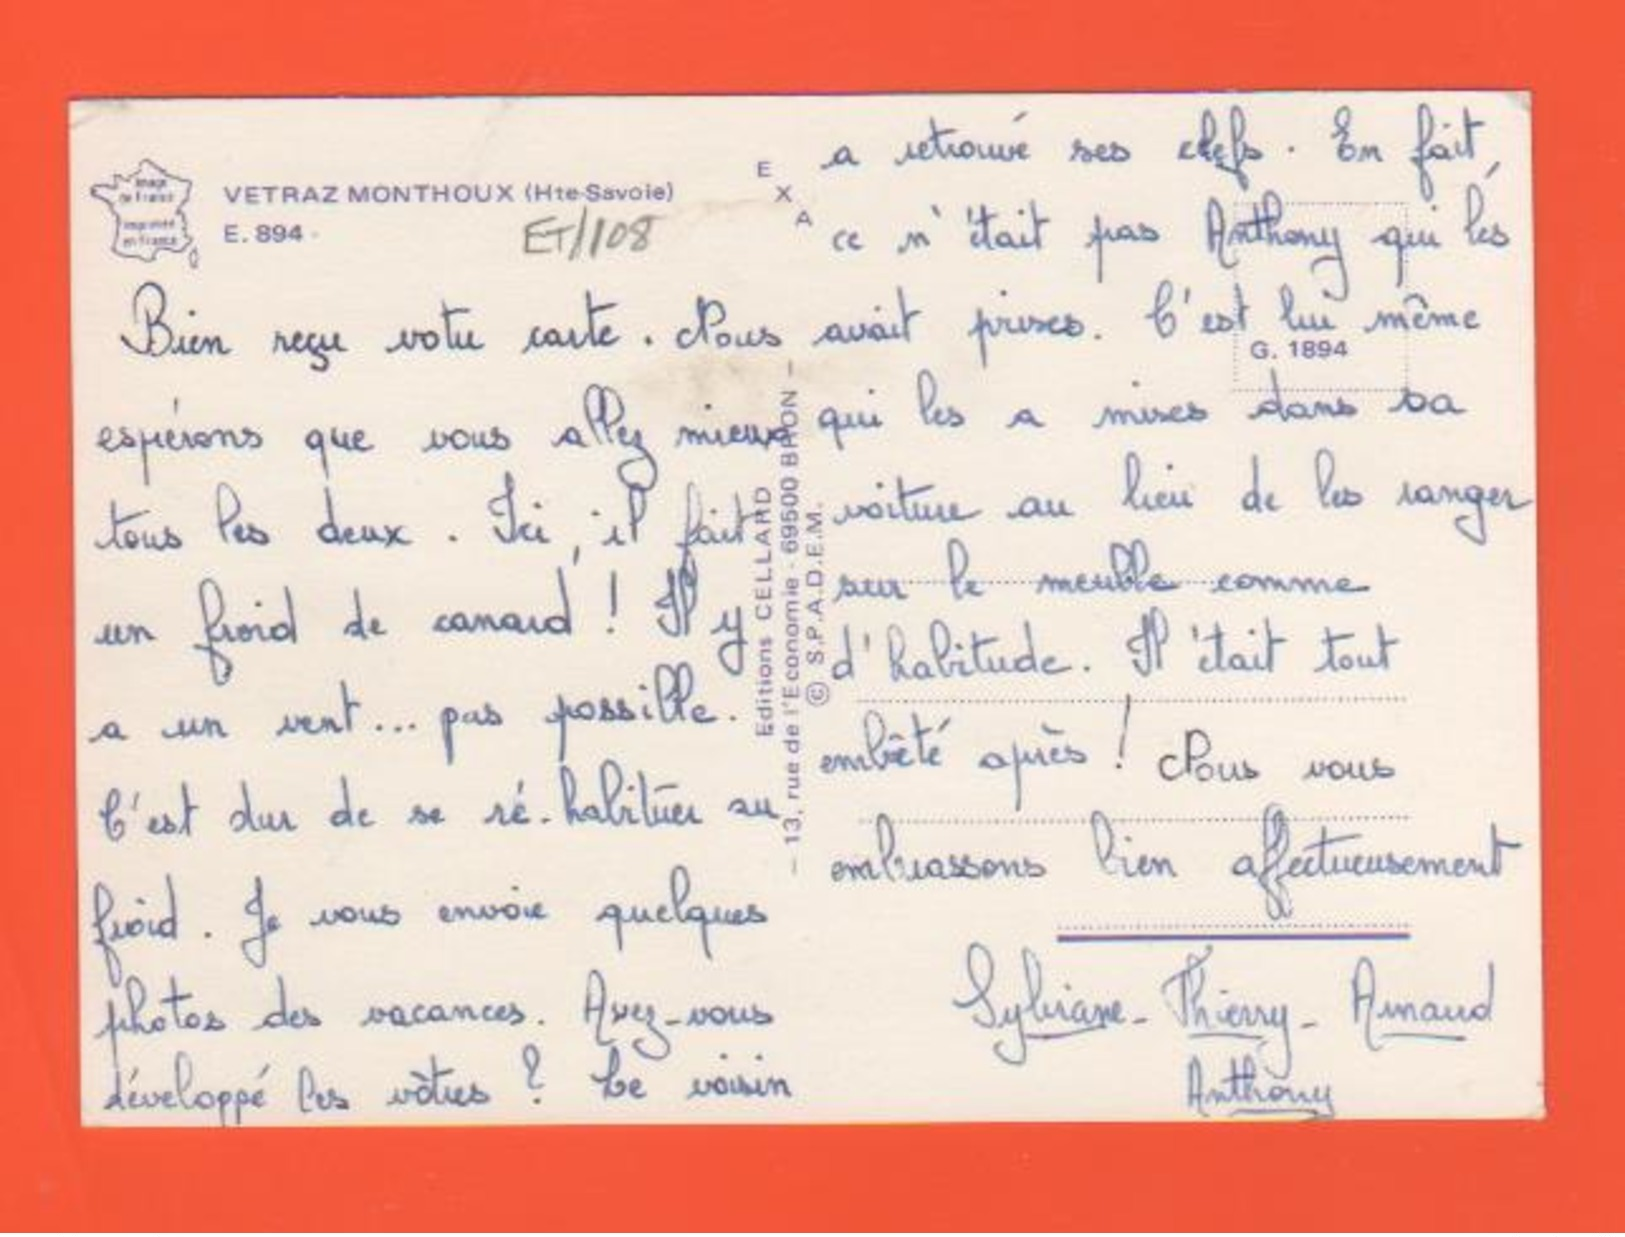 image
de France
imprimée
en france
VETRAZ MONTHOUX (Hte-Savoie)
E. 894
ET/108
E
X
A
Bien reçu votre carte. Nous
espérons que vous allez mieux
tous les deux. Ici, il fait
un froid de canard ! Il y
a un vent... pas possible.
C'est dur de se ré-habituer au
froid. Je vous envoie quelques
photos des vacances. Avez-vous
développé les vôtres ? Le voisin
Editions CELLARD
— 13, rue de l'Economie - 69500 BRON —
© S.P.A.D.E.M.
a retrouvé ses clefs. En fait,
ce n'était pas Anthony qui les
avait prises. C'est lui même
G. 1894
qui les a mises dans sa
voiture au lieu de les ranger
sur le meuble comme
d'habitude. Il était tout
embêté après ! Nous vous
embrassons bien affectueusement
Sylviane - Thierry - Arnaud
Anthony